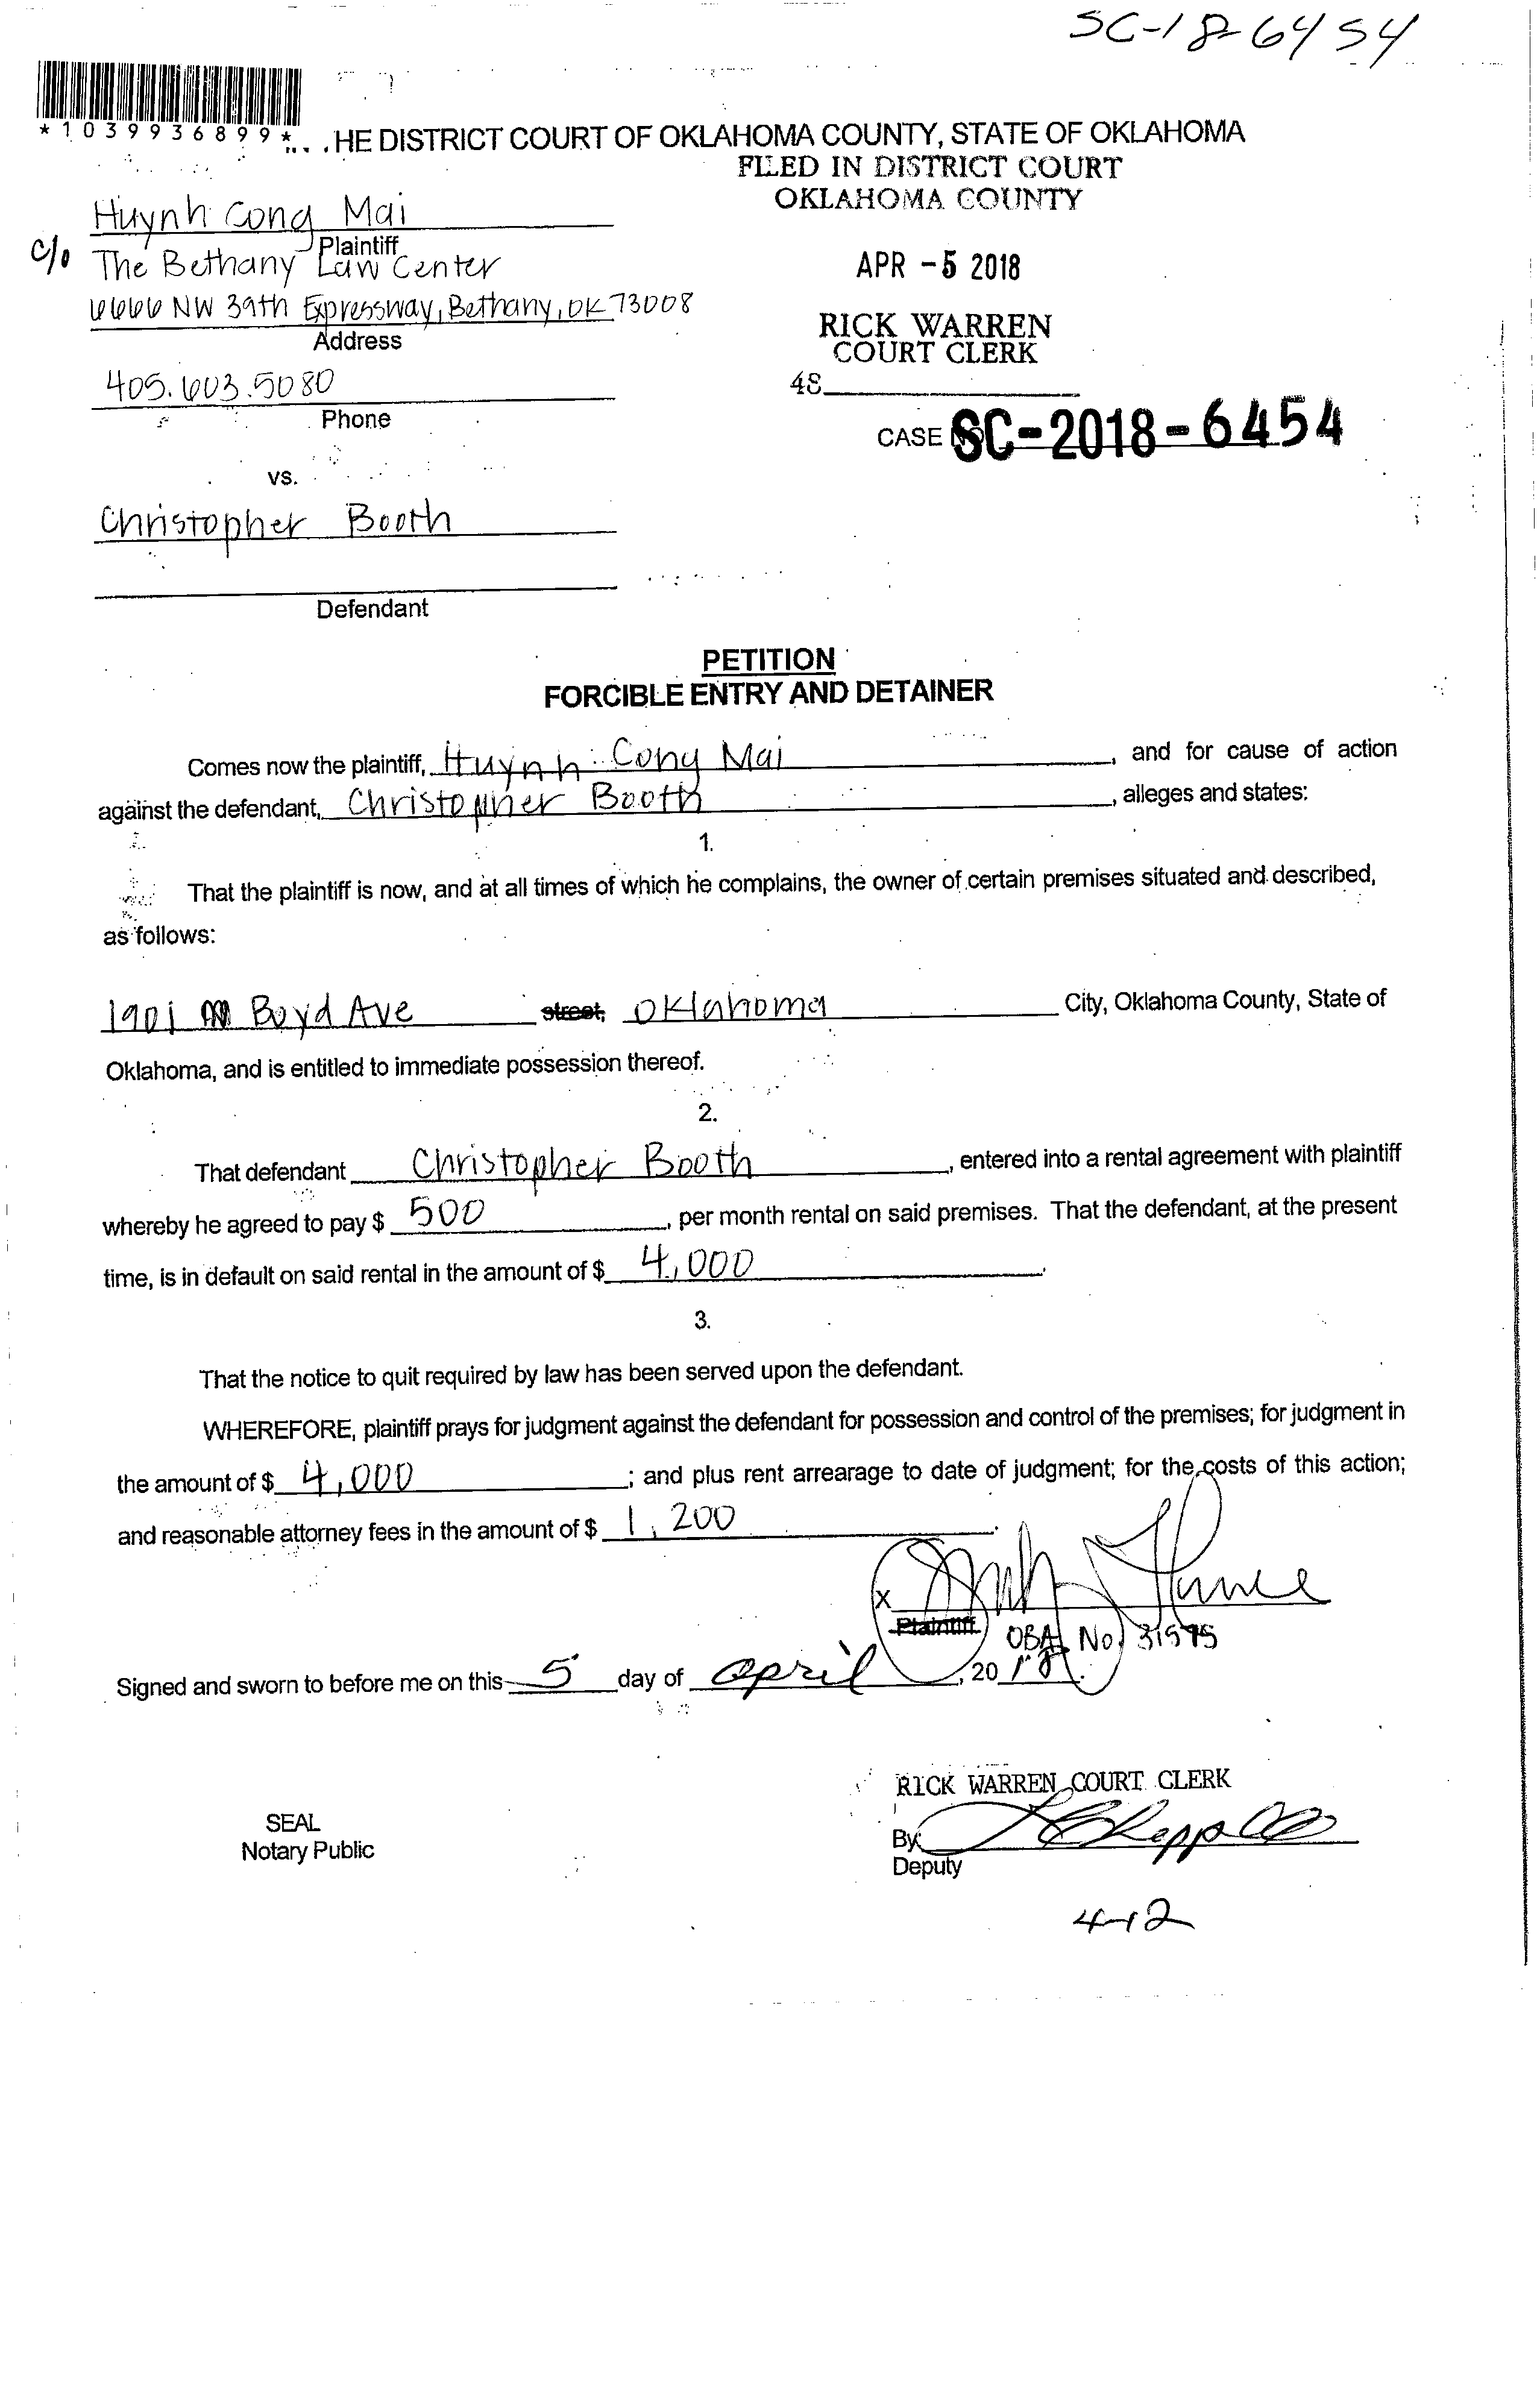 SC-18-6454
*1039936899*
HE DISTRICT COURT OF OKLAHOMA COUNTY, STATE OF OKLAHOMA
FILED IN DISTRICT COURT
OKLAHOMA COUNTY
Huynh Cong Mai
Plaintiff
c/o The Bethany Law Center
6666 NW 39th Expressway, Bethany, OK 73008
Address
APR -5 2018
RICK WARREN
COURT CLERK
48
405.603.5080
Phone
CASE NO SC-2018-6454
vs.
Christopher Booth
Defendant
PETITION
FORCIBLE ENTRY AND DETAINER
Comes now the plaintiff, Huynh Cong Mai, and for cause of action
against the defendant, Christopher Booth, alleges and states:
1.
That the plaintiff is now, and at all times of which he complains, the owner of certain premises situated and described,
as follows:
1901 N Boyd Ave street, Oklahoma City, Oklahoma County, State of
Oklahoma, and is entitled to immediate possession thereof.
2.
That defendant Christopher Booth, entered into a rental agreement with plaintiff
whereby he agreed to pay $ 500, per month rental on said premises. That the defendant, at the present
time, is in default on said rental in the amount of $ 4,000.
3.
That the notice to quit required by law has been served upon the defendant.
WHEREFORE, plaintiff prays for judgment against the defendant for possession and control of the premises; for judgment in
the amount of $ 4,000; and plus rent arrearage to date of judgment; for the costs of this action;
and reasonable attorney fees in the amount of $ 1,200.
X
Plaintiff OBA No. 31595
Signed and sworn to before me on this 5 day of April, 2018.
RICK WARREN COURT CLERK
SEAL
Notary Public
By:
Deputy
4-12